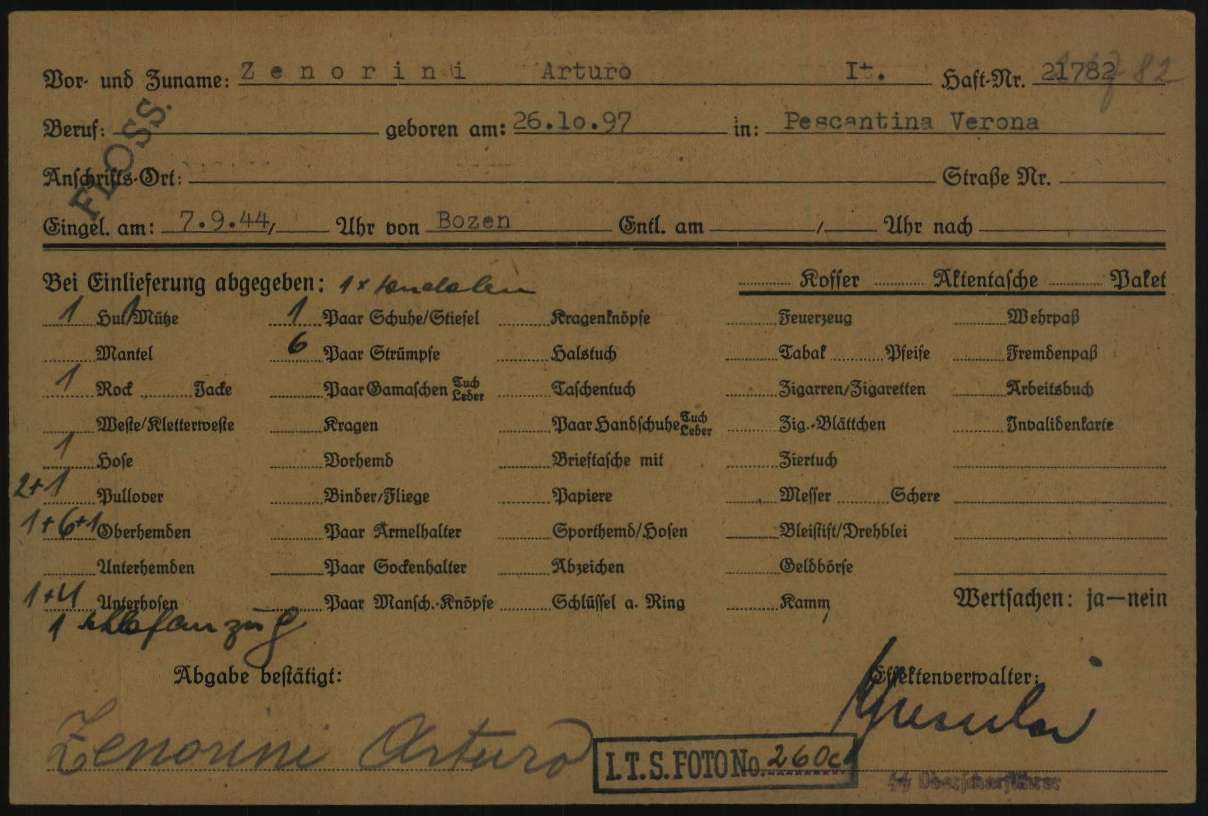 Vor- und Zuname: Zenorini Arturo It. Haft-Nr. 21782 82
Beruf: geboren am: 26.10.97 in: Pescantina Verona
FLOSS.
Anschrifts-Ort: Straße Nr.
Eingel. am: 7.9.44, Uhr von Bozen Entl. am / Uhr nach
Bei Einlieferung abgegeben: 1 x Koffer Aktentasche Paket
1 Hut/Mütze 1 Paar Schuhe/Stiefel Kragenknöpfe Feuerzeug Wehrpaß
Mantel 6 Paar Strümpfe Halstuch Tabak Pfeife Fremdenpaß
1 Rock Jacke Paar Gamaschen Tuch Leder Taschentuch Zigarren/Zigaretten Arbeitsbuch
Weste/Kletterweste Kragen Paar Handschuhe Tuch Leder Zig.-Blättchen Invalidenkarte
1 Hose Vorhemd Brieftasche mit Ziertuch
2+1 Pullover Binder/Fliege Papiere Messer Schere
1+6+1 Oberhemden Paar Ärmelhalter Sporthemd/Hosen Bleistift/Drehblei
Unterhemden Paar Sockenhalter Abzeichen Geldbörse
1+4 Unterhosen Paar Mansch.-Knöpfe Schlüssel a. Ring Kamm Wertsachen: ja—nein
1 Schlafanzug
Abgabe bestätigt: Effektenverwalter:
Zenorini Arturo
I.T.S. FOTO No. 260c
SS Oberscharführer